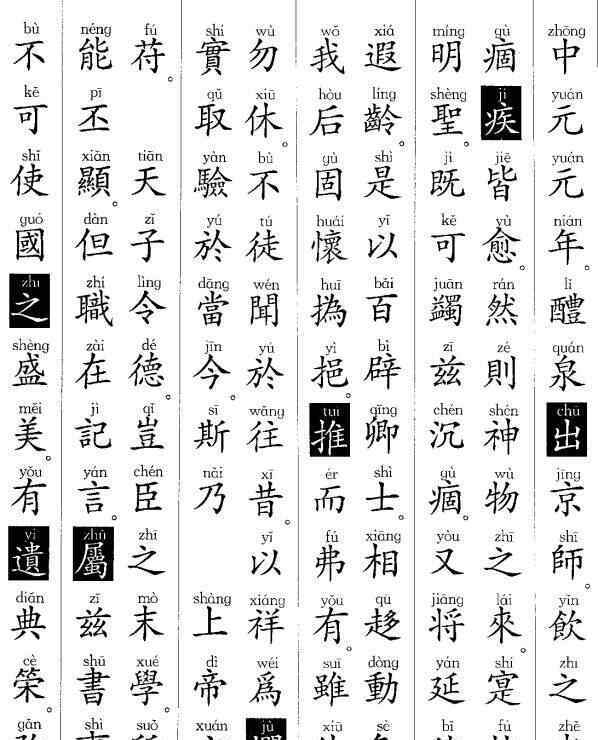 zhōng yuán yuán nián lǐ quán chū jīng shī yǐn zhī zhě
中元元年。醴泉出京師。飲之
gù jí jiē yù rán zé shén wù zhī lái shí fú
痼疾皆愈。然則神物之來。寔
míng shèng jì kě juān zī chén gù yòu jiāng yán bī
明聖。既可蠲兹沉痼。又將延
xiá líng shì yǐ bǎi bì qīng shì xiāng qū dòng sè
遐齡。是以百辟卿士。相趍動
wǒ hòu gù huái huī yì tuī ér fú yǒu suī xiū
我后固懷撝挹。推而弗有。雖
wù xiū bù tú wén yú wǎng xī yǐ xiáng wéi jù
勿休。不徒聞於往昔。以祥爲
shí qǔ yàn yú dāng jīn sī nǎi shàng dì xuán
實取驗於當今。斯乃上帝
fú tiān zǐ lìng dé qǐ chén zhī mò xué suǒ
苻。天子令德。豈臣之末學。
néng pī xiǎn dàn zhí zài jì yán zhǔ zī shū shì
能丕顯。但職在記言。屬兹書
bù kě shǐ guó zhī shèng měi yǒu yí diǎn cè gǎn
不可使國之盛美。有遺典策。